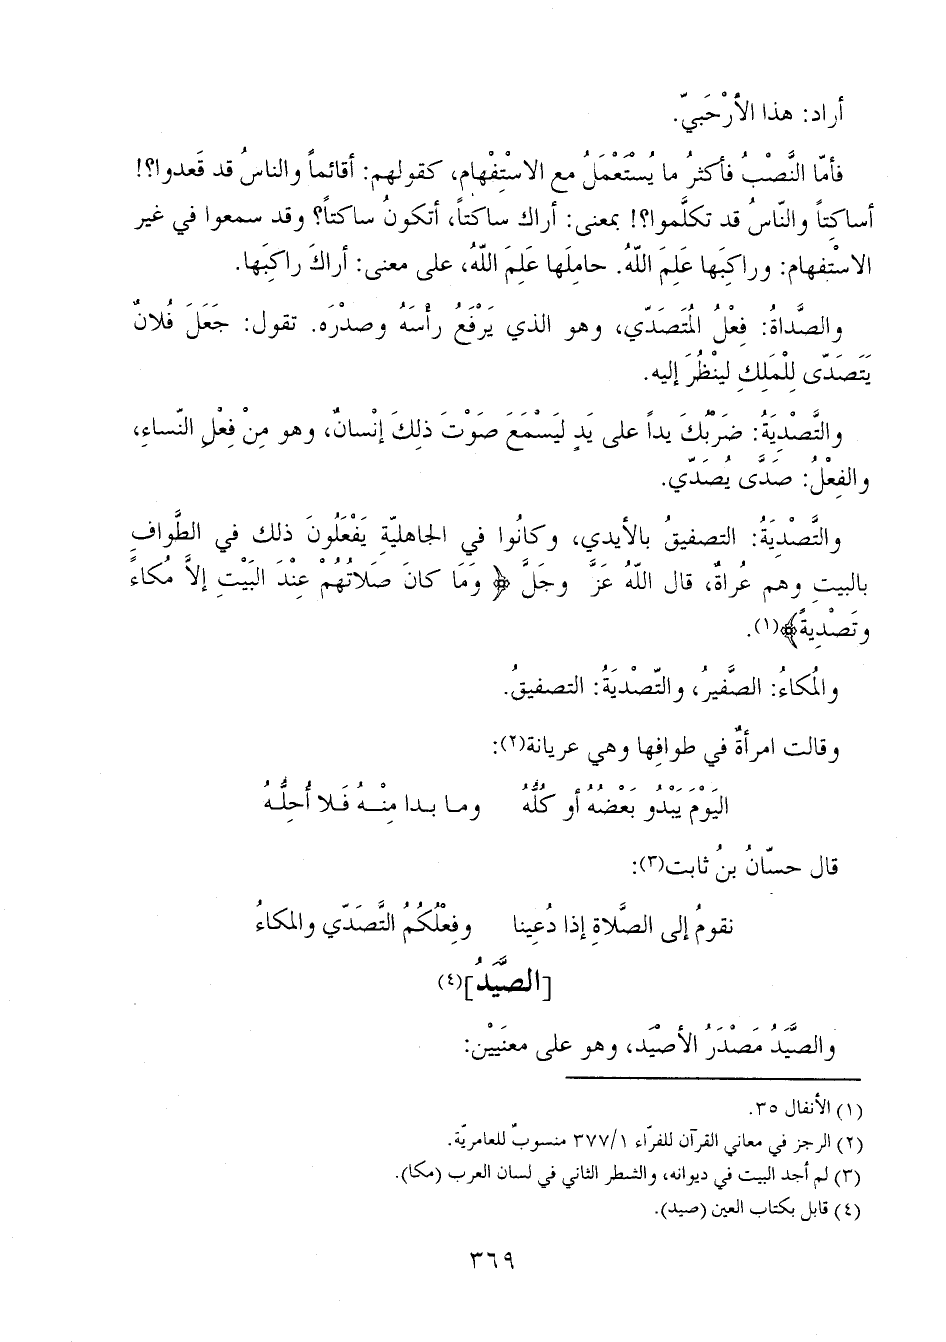 أراد: هذا الأرْحَبيّ.
فأمّا النَّصْبُ فأكثرُ ما يُسْتَعْمَلُ مع الاسْتِفْهام، كقولهم: أقائماً والناسُ قد قَعدوا؟!
أساكتاً والنّاسُ قد تكلَّموا؟! بمعنى: أراك ساكتاً، أتكونُ ساكتاً؟ وقد سمعوا في غير
الاسْتِفهام: وراكِبَها عَلِمَ اللّهُ. حامِلَها عَلِمَ اللّهُ، على معنى: أراكَ راكِبَها.
والصَّداةُ: فِعْلُ المُتَصَدّي، وهو الذي يَرْفَعُ رأْسَهُ وصدْرَه. تقول: جَعَلَ فُلانٌ
يَتَصَدّى لِلْمَلِكِ لينْظُرَ إليه.
والتَّصْدِيَةُ: ضَرْبُكَ يداً على يَدٍ ليَسْمَعَ صَوْتَ ذلِكَ إنْسانٌ، وهو مِنْ فِعْلِ النّساءِ،
والفِعْلُ: صَدَّى يُصَدّي.
والتَّصْدِيَةُ: التصفيقُ بالأيدي، وكانُوا في الجاهليّةِ يَفْعَلُونَ ذلك في الطَّوافِ
بالبيتِ وهم عُراةٌ، قال اللّهُ عَزَّ وجَلَّ ﴿وَمَا كانَ صَلاتُهُمْ عِنْدَ البَيْتِ إلاَّ مُكاءً
وتَصْدِيةً﴾(١).
والمُكاءُ: الصَّفيرُ، والتّصْديَةُ: التصفيقُ.
وقالت امرأةٌ في طوافِها وهي عريانة(٢):
اليَوْمَ يَبْدُو بَعْضُهُ أو كُلُّهُ وما بدا مِنْهُ فَلا أُحِلُّهُ
قال حسّانُ بنُ ثابت(٣):
نقومُ إلى الصَّلاةِ إذا دُعِينا وفِعْلُكُمُ التَّصَدّي والمكاءُ
[الصَّيَدُ](٤)
والصَّيَدُ مَصْدَرُ الأصْيَد، وهو على معنَيَيْن:
(١) الأنفال ٣٥.
(٢) الرجز في معاني القرآن للفرّاء ٣٧٧/١ منسوبٌ للعامريّة.
(٣) لم أجد البيت في ديوانه، والشطر الثاني في لسان العرب (مكا).
(٤) قابل بكتاب العين (صيد).
٣٦٩